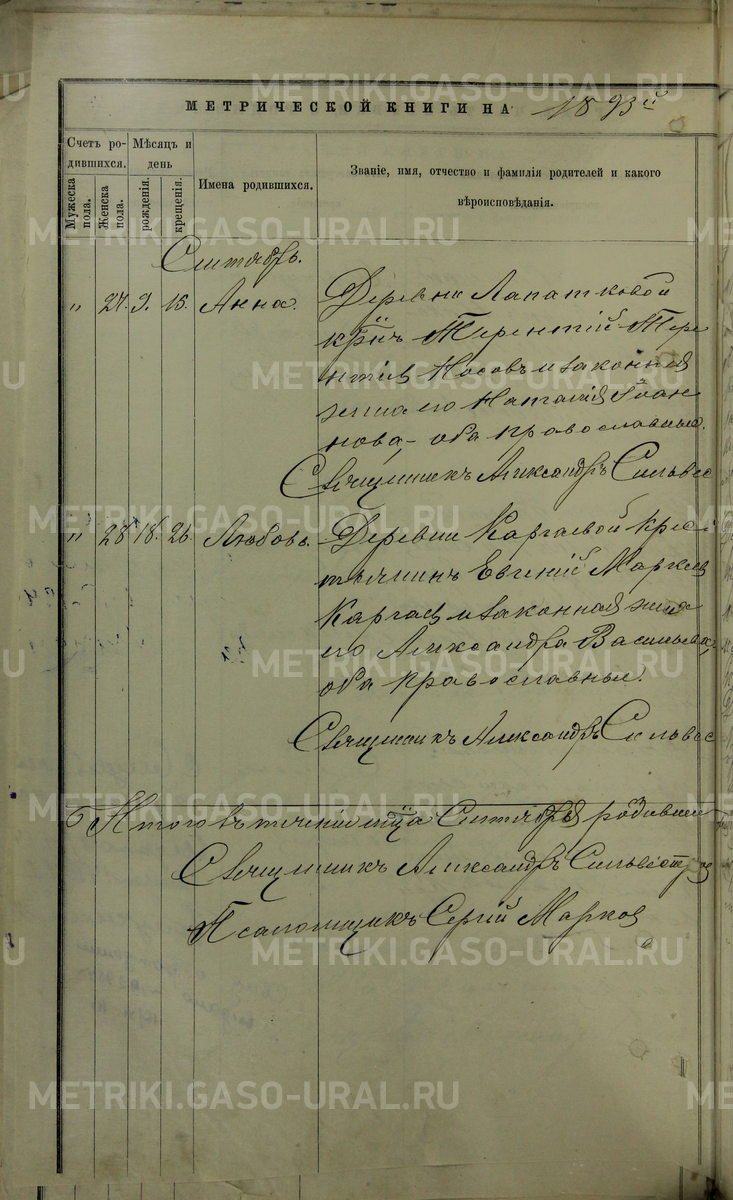 МЕТРИЧЕСКОЙ КНИГИ НА 1893й
Счетъ ро-
дившихся.
Мѣсяцъ и
день
Мужеска
пола.
Женска
пола.
рожденія.
крещенія.
Имена родившихся.
Званіе, имя, отчество и фамилія родителей и какого
вѣроисповѣданія.
Сентябрь.
" 27. 9. 15. Анна. Деревни Лапатковой
крнъ Терентій Тере
нтіев Носовъ и законная
жена его Наталія Іоан
нова, оба православные.
Священникъ Александръ Сильвес
" 28 18. 26 Любовь. Деревни Каргаевой крес-
тьянинъ Евгеній Маркев
Каргаев и законная жена
его Александра Васильева,
оба православные.
Священникъ Александръ Сильвес
Итого въ теченіи мца Сентября родивши
Священникъ Александръ Сильвестров
Псаломщикъ Сергій Марков
METRIKI.GASO-URAL.RU